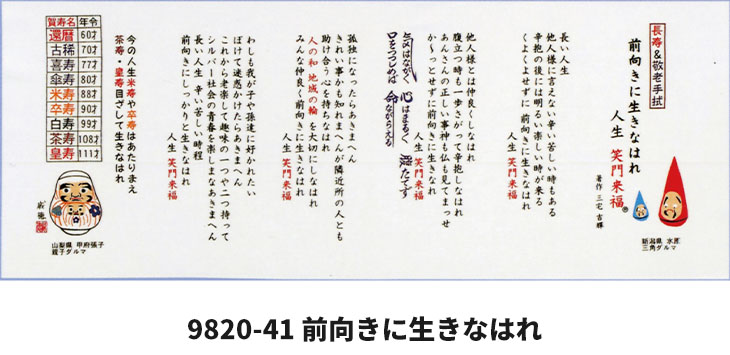 長寿&敬老手拭
前向きに生きなはれ
人生 笑門来福®
著作 三宅 吉輝
新潟県 水原
三角ダルマ
長い人生
他人様に言えない辛い苦しい時もある
辛抱の後には明るい楽しい時が来る
くよくよせずに前向きに生きなはれ
人生 笑門来福
他人様とは仲良くしなはれ
腹立つ時も一歩さがって辛抱しなはれ
あんさんの正しい事神も仏も見てまっせ
か〜っとせずに前向きに生きなれ
人生 笑門来福
気はながく 心はまるく 腹たてず
口をつつしめば 命ながらえる
孤独になったらあきまへん
きれい事かも知れまへんが隣近所の人とも
助け合う心を持ちなはれ
人の和 地域の輪を大切にしなはれ
みんな仲良く前向きに生きなはれ
人生 笑門来福
わしも我が子や孫達に好かれたい
ぼけて迷惑かけたらあきまへん
これから老楽して趣味の一つや二つ持って
シルバー社会の青春を楽しまなあきまへん
長い人生 辛い苦しい時程
前向きにしっかりと生きなはれ
人生 笑門来福
今の人生米寿や卒寿はあたりまえ
茶寿・皇寿目ざして生きなはれ
賀寿名 年令
還暦 60才
古稀 70才
喜寿 77才
傘寿 80才
米寿 88才
卒寿 90才
白寿 99才
茶寿 108才
皇寿 111才
山梨県 甲府張子
親子ダルマ
9820-41 前向きに生きなはれ